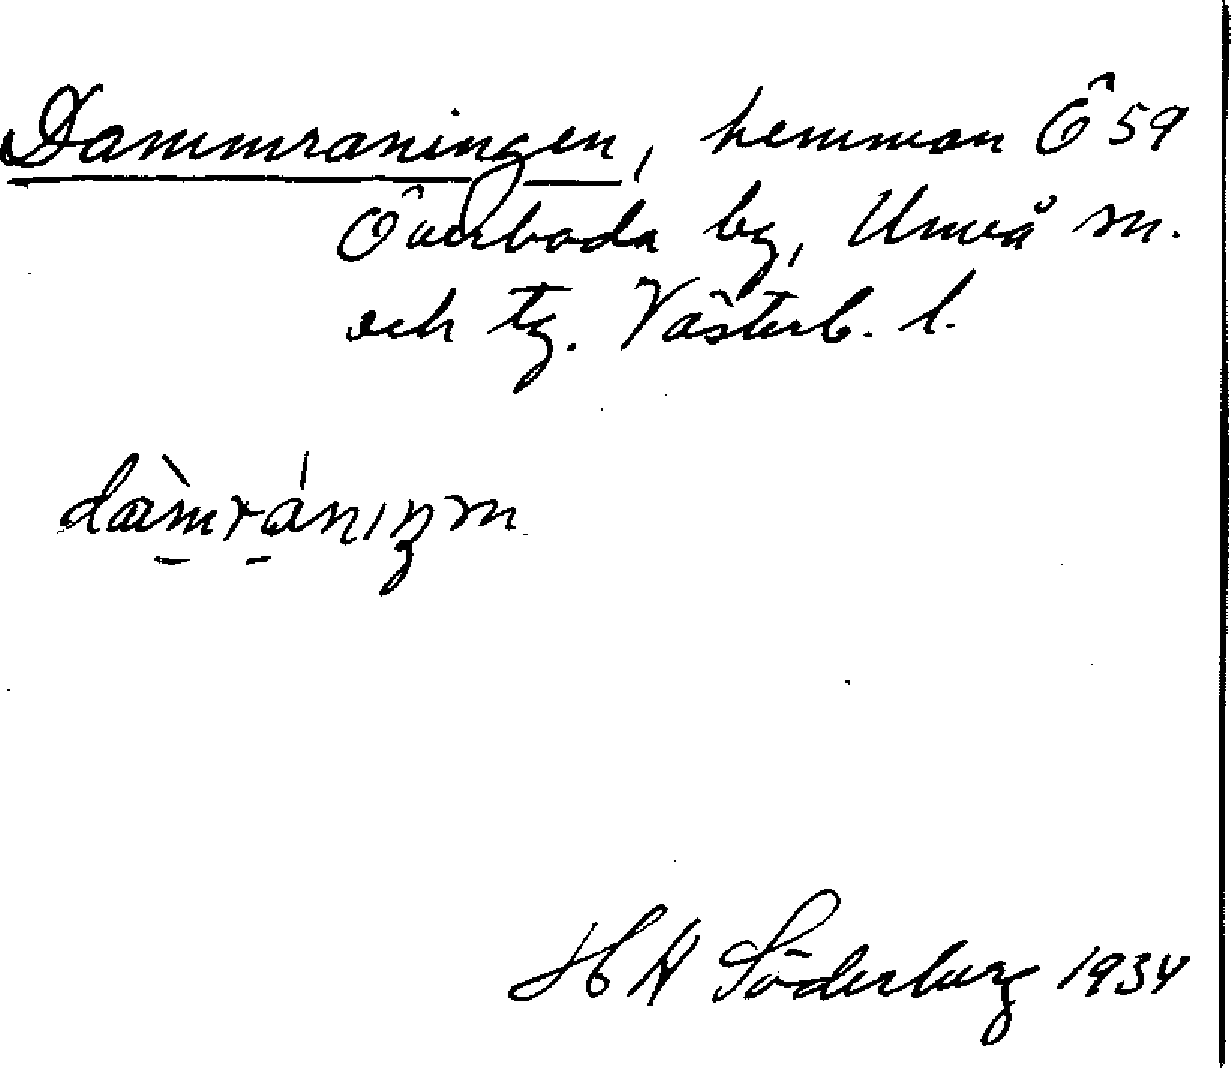 Dammraningen, hemman Ö 59
Överboda by, Umeå sn.
och tg. Västerb. l.
dàmránıŋm
H A Söderberg 1934